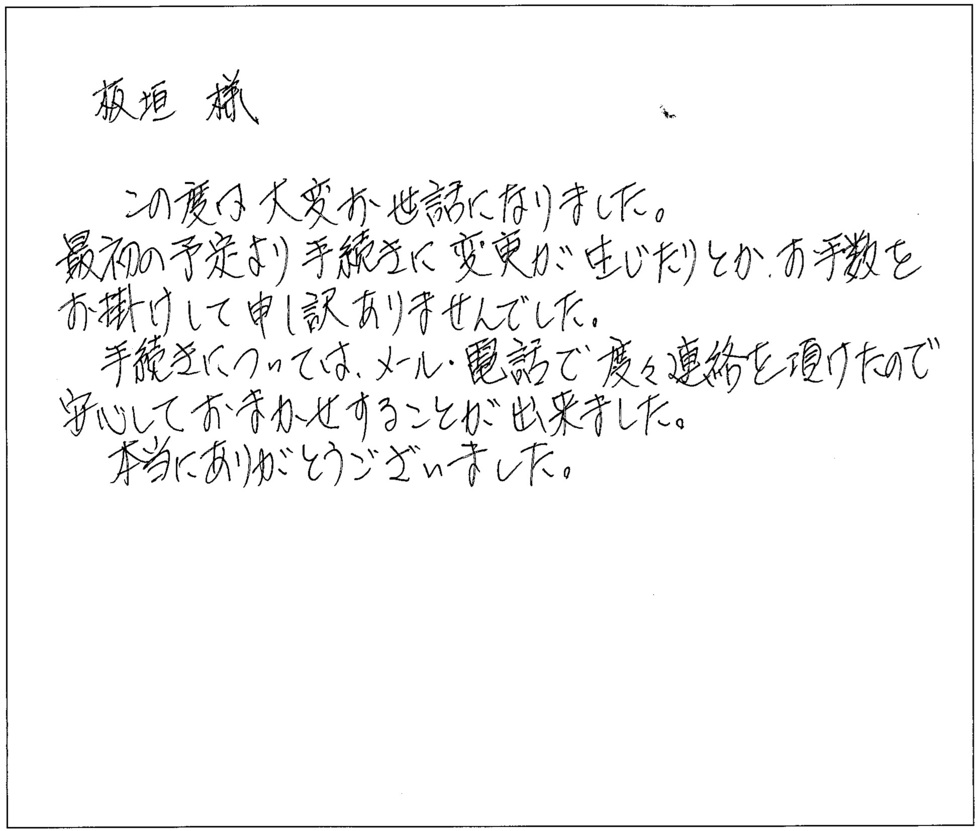 板垣 様
この度は大変お世話になりました。
最初の予定より手続きに変更が生じたりとか、お手数を
お掛けして申し訳ありませんでした。
手続きについては、メール・電話で度々連絡を頂けたので
安心しておまかせすることが出来ました。
本当にありがとうございました。